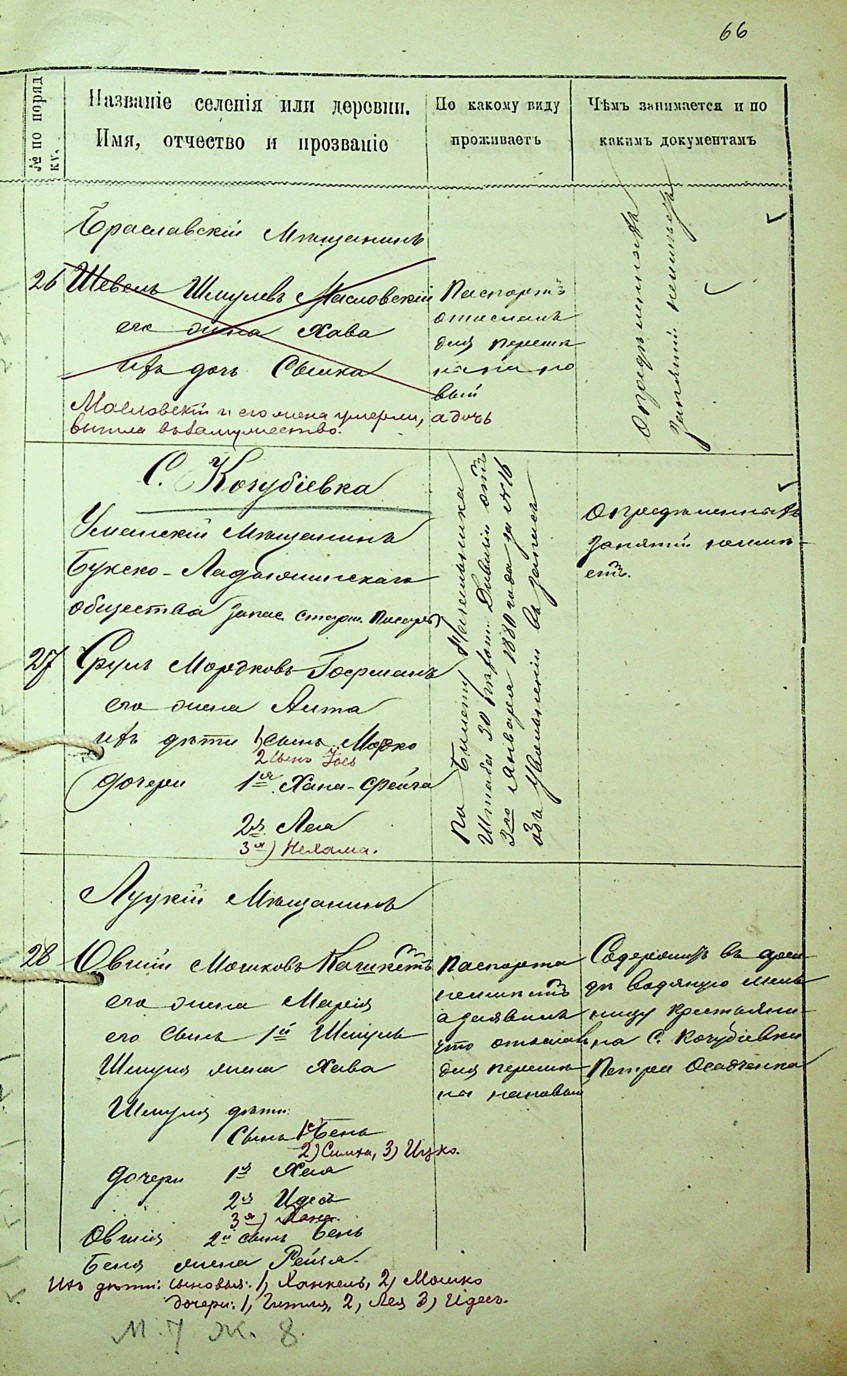 66
№ по поряд
ку.
Названіе селенія или деревни.
Имя, отчество и прозваніе
По какому виду
проживаетъ
Чѣмъ занимается и по
какимъ документамъ
Браславскій Мѣщанинъ
26
Шевель Шмулевъ Масловскій
его жена Хава
ихъ дочь Сышка
Масловскій и его жена умерли, а дочь
вышла въ замужество.
Паспортъ
отосланъ
для перемѣ
на но
вый
Опредѣленныхъ
занятій неимѣетъ
С. Кочубіевка
Уманскій Мѣщанинъ
Букско-Ладыжинскаго
общества запас. старш. Писарь
27
Сруль Мордковъ Гофманъ
его жена Анта
ихъ дѣти 1) сынъ Мордко
2 сынъ Іось
дочери 1я Хана-Фейга
2я Лея
3я) Нехама.
По Билету Начальника
Штаба 30 Дивизіи отъ
3го Января 1880 года за № 16
объ увольненіи въ запасъ
Опредѣленныхъ
занятій неимѣ-
етъ.
Луцкій Мѣщанинъ
28
Овшій Мошковъ Кашкетъ
его жена Марія
его сынъ 1й Шмуль
Шмуля жена Хава
Шмуля дѣти:
сынъ 1й Бень
2) Симха, 3) Ицко.
дочери 1я Хая
2я Идесъ
3я) Хана.
Овшія 2й сынъ Бень
Беня жена Рейзя.
Ихъ дѣти: сыновья: 1, Ханкель, 2, Мошко
дочери: 1, Гитля, 2, Лея 3, Идесъ.
Паспорта
неимѣетъ
а заявилъ
что отослан
для перемѣ
ны на новый
Содержитъ въ арен-
дѣ водяную мель
ницу крестьяни-
на С. Кочубіевки
Петра Осадченка
М. 7 Ж. 8.